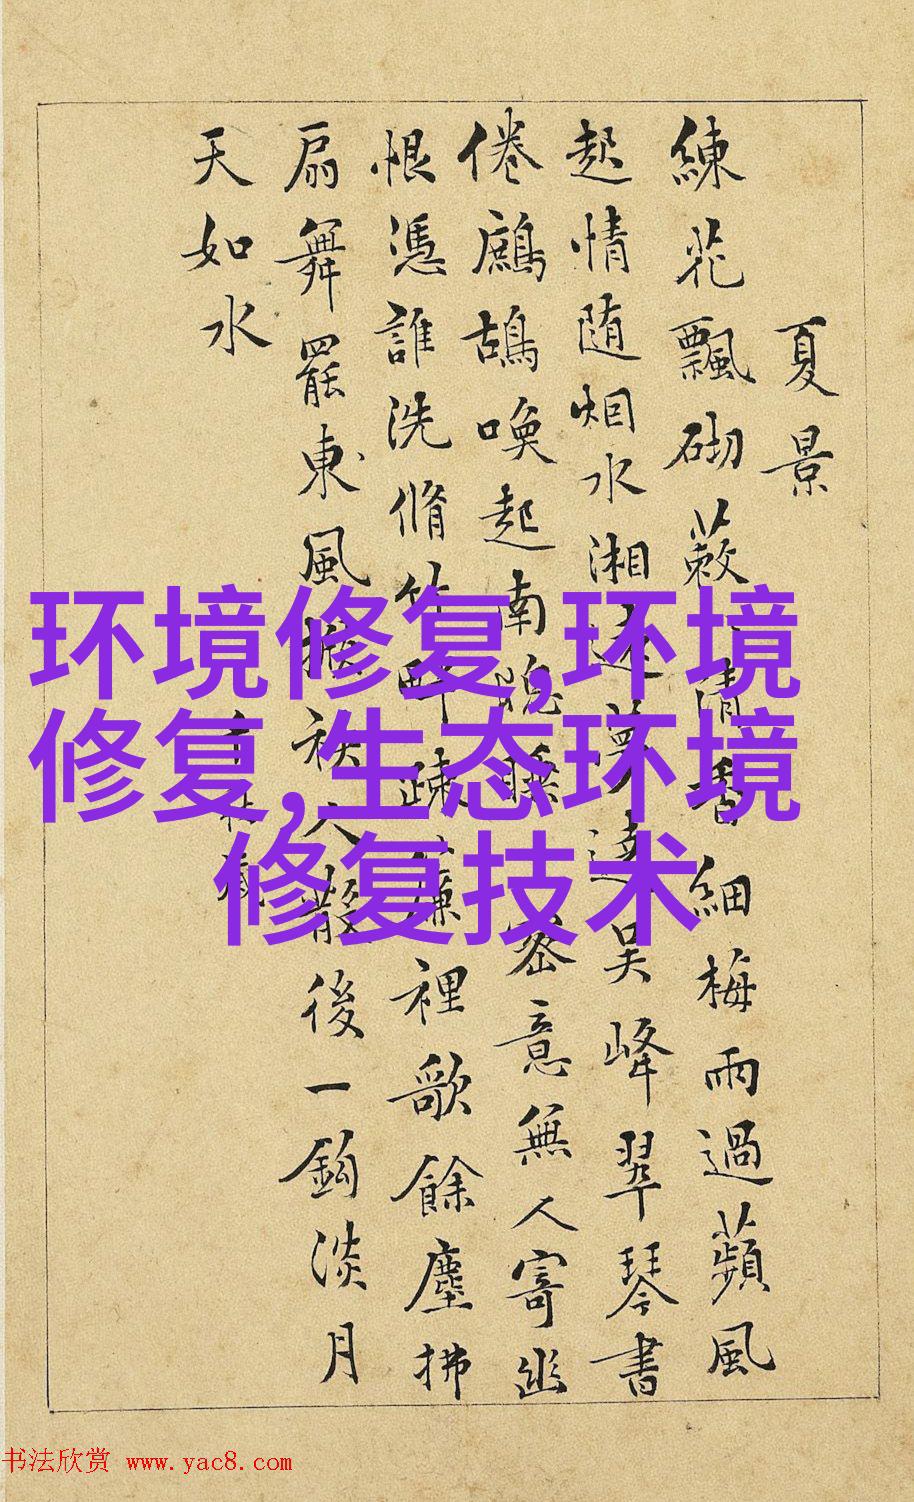 夏景
練花飄砌蔌清香細梅雨過蘋風
起情随烟水湘遠夢遶吴峰翠琴書
倦鷓鴣喚起南窻睡密意無人寄幽
恨憑誰洗脩竹畔疎簾裡歌餘塵拂
扇舞罷東風掀袂人散後一鈎淡月
天如水
环境修复,环境
修复,生态环境
修复技术
书法欣赏 www.yac8.com